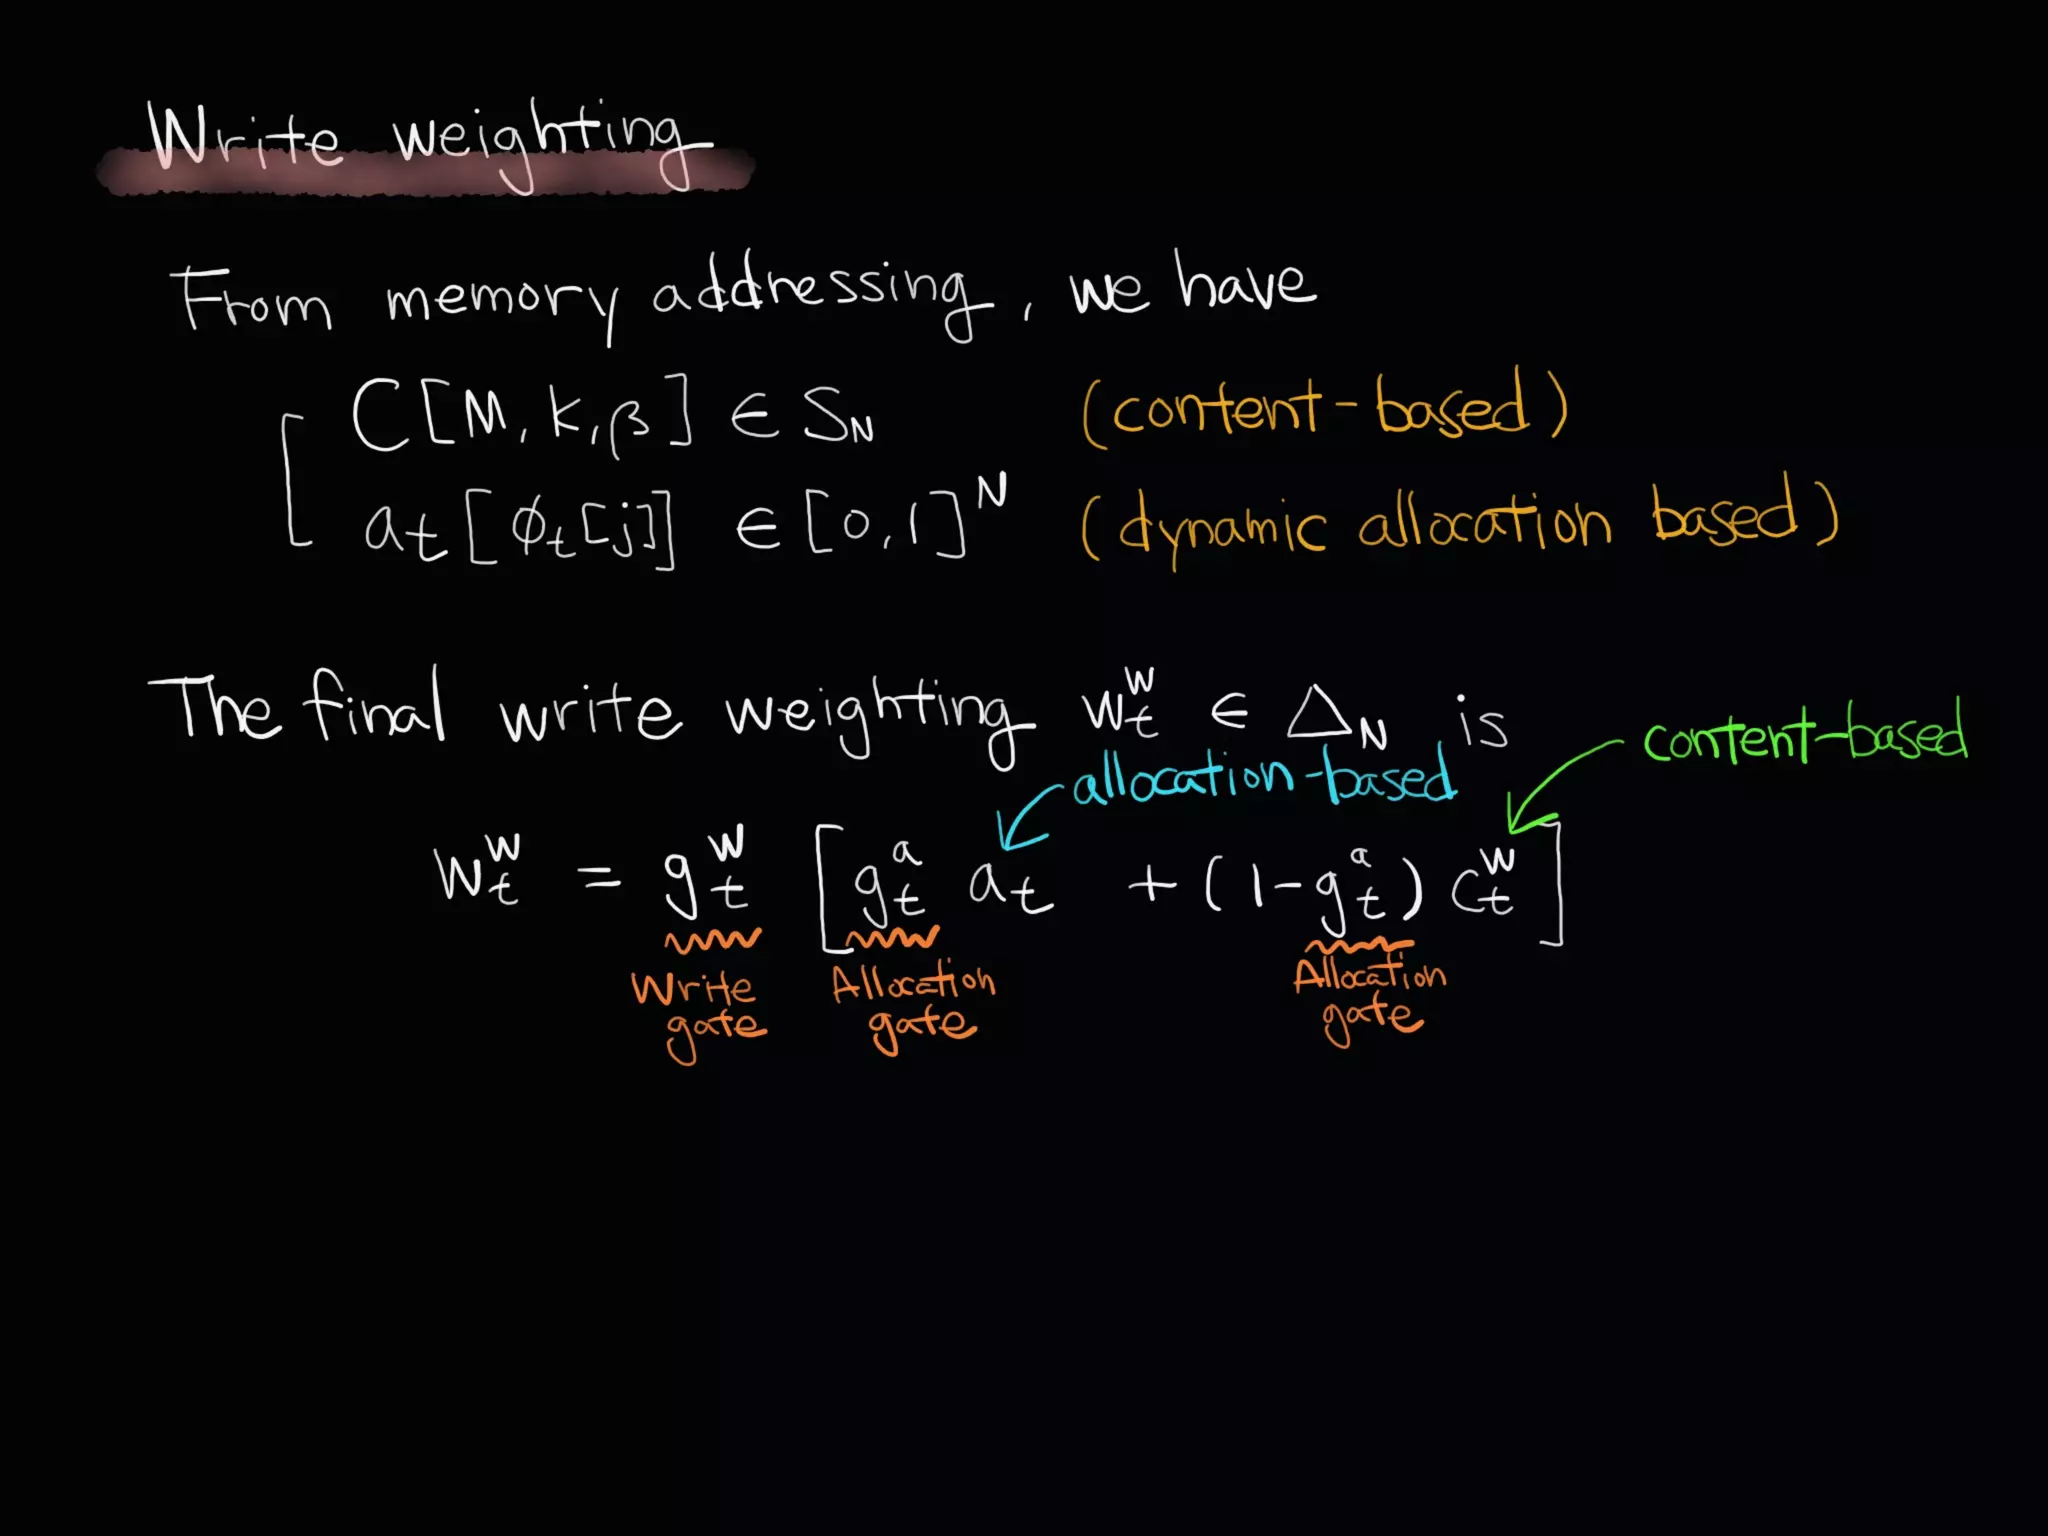 Write weighting
From memory addressing, we have
C[M, k, β] ∈ S_N (content-based)
a_t[φ_t[j]] ∈ [0,1]^N (dynamic allocation based)
The final write weighting w_t^w ∈ Δ_N is
allocation-based content-based
w_t^w = g_t^w [g_t^a a_t + (1-g_t^a) c_t^w]
Write gate Allocation gate Allocation gate